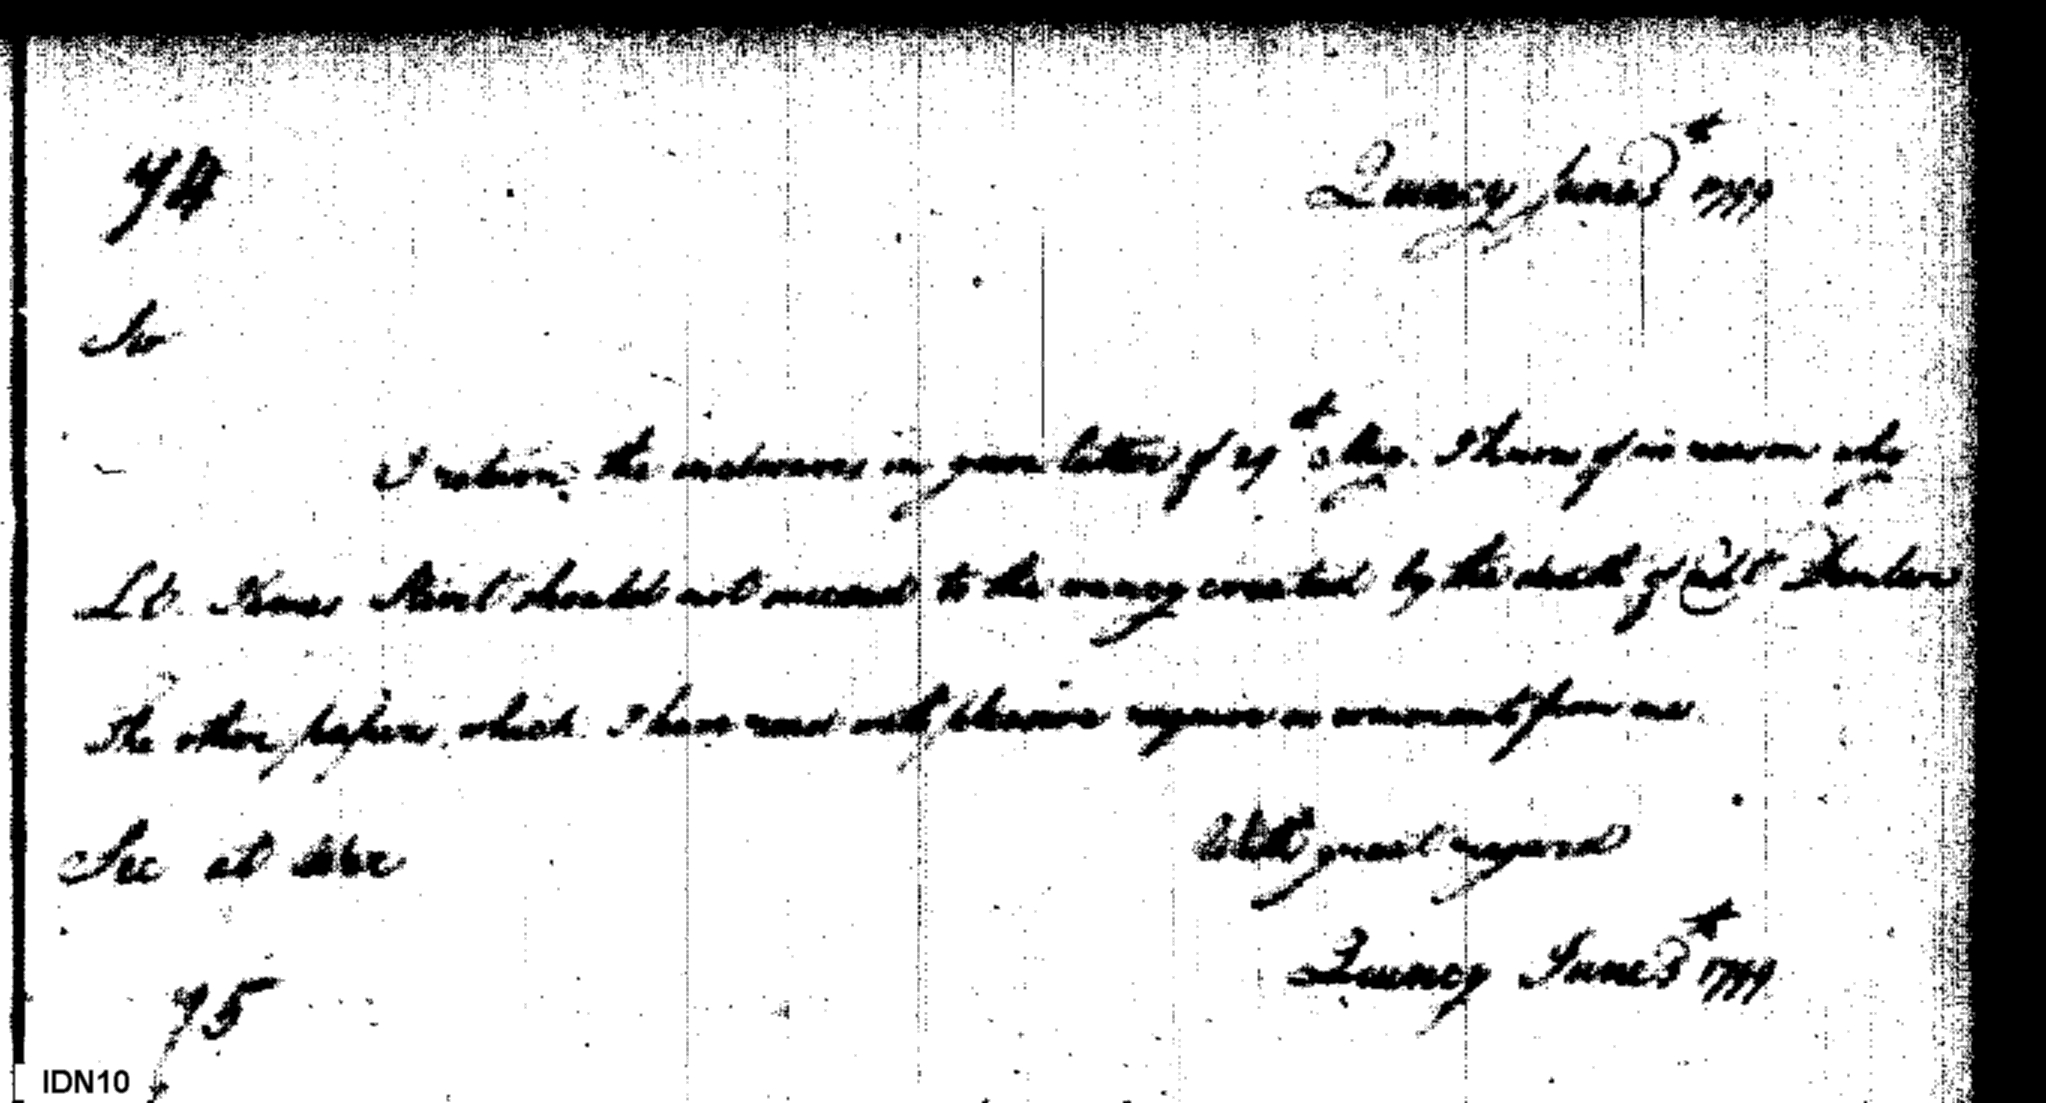 74
Quincy June 3d 1799
Sir
I return the enclosures in your letter of 29th May. I know of no reason why
Lt. should not succeed to the vacancy created by the death of
The other papers, which I have read with pleasure require no comments from me.
Sec at War
With great regard
Quincy June 3d 1799
75
IDN10